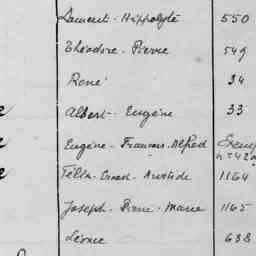 Laurent - Hippolyte 550
Théodore - Pierre 549
René 34
Albert - Eugène 33
Eugène - François - Alfred
Félix - Ernest - Aristide 1164
Joseph - Pierre - Marie 1165
Léonce 638